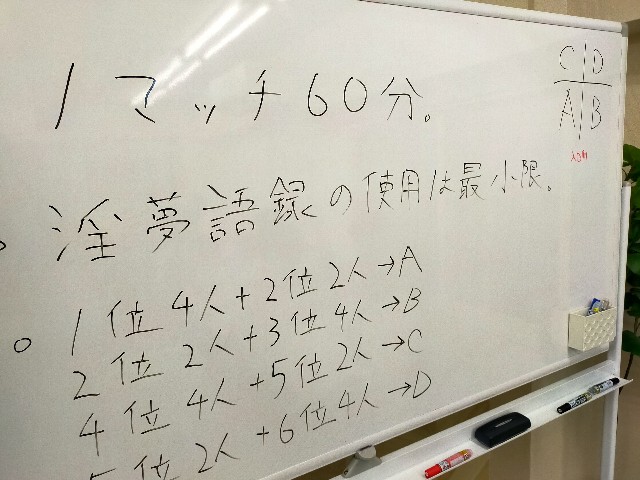 1マッチ60分。
C D
A B
入口
。淫夢語録の使用は最小限。
。1位4人+2位2人→A
2位2人+3位4人→B
4位4人+5位2人→C
5位2人+6位4人→D